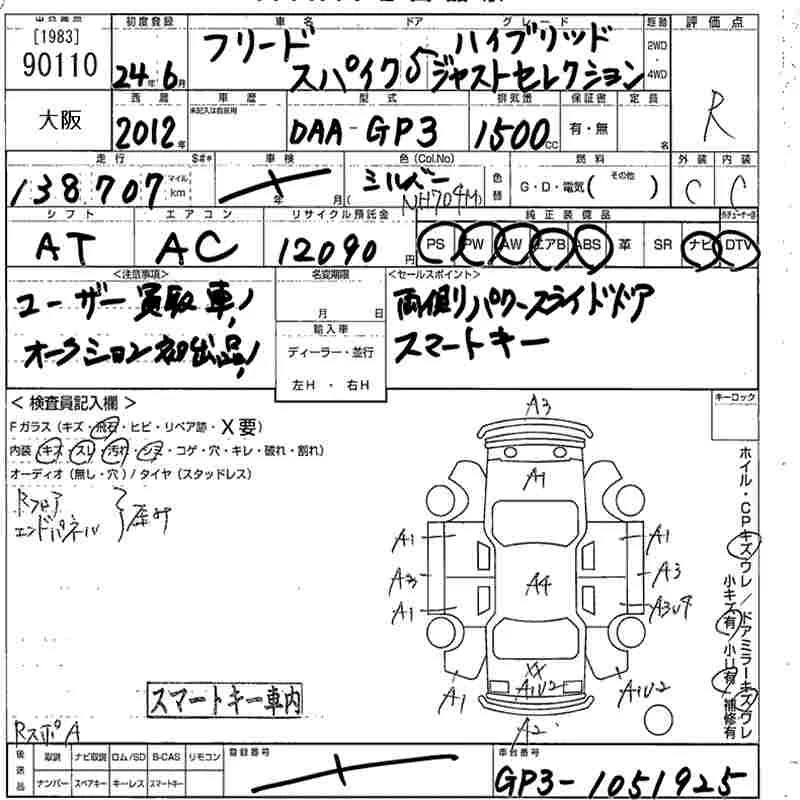 [1983]
90110
大阪
初度登録 車名 ドア グレード 駆動 評価点
24年6月 フリードスパイク 5 ハイブリッド ジャストセレクション 2WD・4WD
R
西暦 車歴 型式 排気量 保証書 定員
2012年 未記入は自家用 DAA-GP3 1500cc 有・無 名
走行 S#* 車検 色(Col.No) 色替 燃料 外装 内装
138,707 マイル km 年 月( シルバー NH704M) G・D・電気( その他 ) C C
シフト エアコン リサイクル預託金 純正装備品
AT AC 12090円 PS PW AW エアB ABS 革 SR ナビ DTV
<注意事項> 名変期限 <セールスポイント>
ユーザー買取車!
オークション初出品!
月 日
輸入車
ディーラー・並行
左H・右H
両側パワースライドドア
スマートキー
<検査員記入欄>
Fガラス(キズ・飛石・ヒビ・リペア跡・X要)
内装(キズ・スレ・汚れ・シミ・コゲ・穴・キレ・破れ・割れ)
オーディオ(無し・穴)/タイヤ(スタッドレス)
Rフロア
エンドパネル
歪み
キーロック
A3
A1
A1 A1
A3 A4 A3
A1 A3U9
XX
A1U2
A1 A1U2
A2
ホイル・CPキズワレ/ドアミラーキズワレ
小キズ有/小U有/補修有
スマートキー車内
RスポA
後送品 取説 ナビ取説 ロム/SD B-CAS リモコン
ナンバー スペアキー キーレス スマートキー
登録番号
車台番号
GP3-1051925